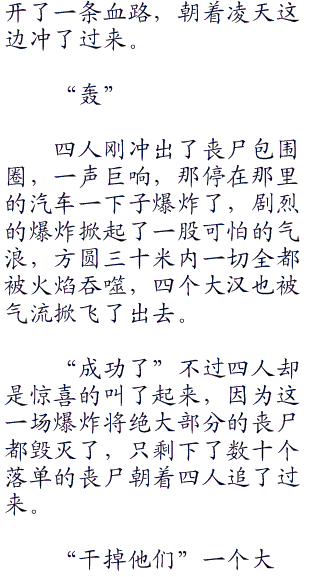 开了一条血路，朝着凌天这
边冲了过来。
“轰”
四人刚冲出了丧尸包围
圈，一声巨响，那停在那里
的汽车一下子爆炸了，剧烈
的爆炸掀起了一股可怕的气
浪，方圆三十米内一切全都
被火焰吞噬，四个大汉也被
气流掀飞了出去。
“成功了”不过四人却
是惊喜的叫了起来，因为这
一场爆炸将绝大部分的丧尸
都毁灭了，只剩下了数十个
落单的丧尸朝着四人追了过
来。
“干掉他们”一个大